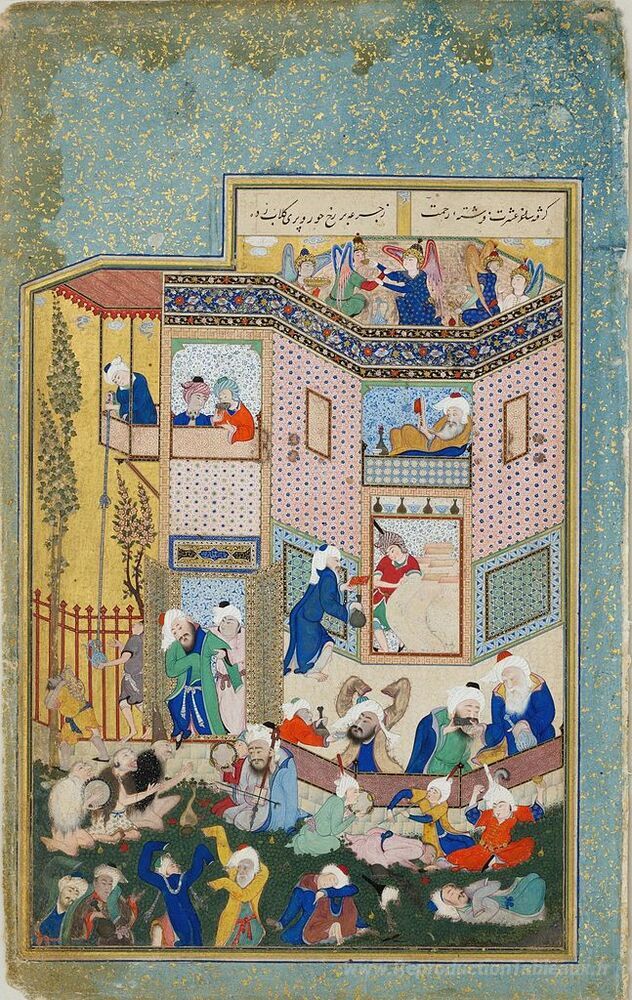 گرفته ساغر عشرت فرشته رحمت ز جرعه بر رخ حور و پری گلاب زده
www.ReproductionTableaux.fr